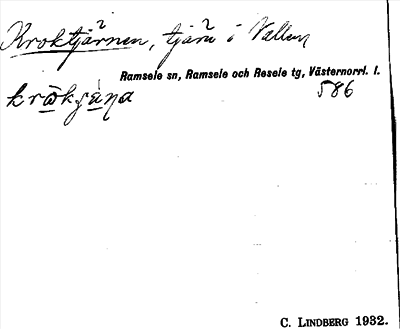 Kroktjärnen, tjärn i Vallen
Ramsele sn, Ramsele och Resele tg, Västernorrl. l.
586
C. LINDBERG 1932.